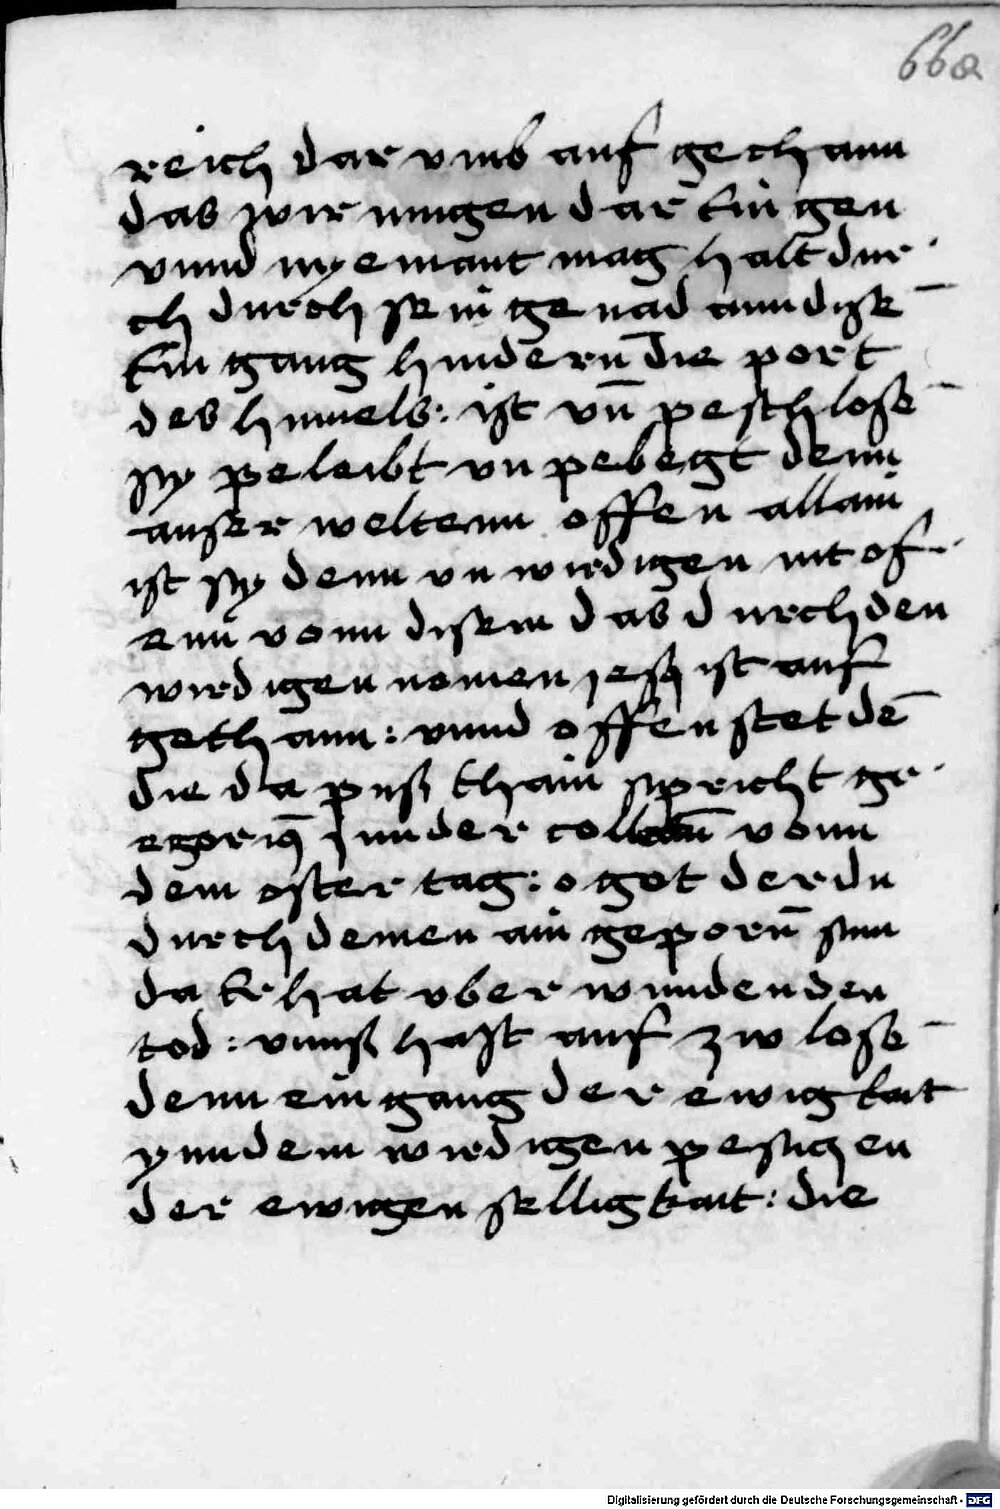 66a
reich dar vmb auf gethann
das wir mugen dar Ein gen
vnnd nyemant mag halt dur
ch durch sein genad ann dise̅
Ein gang hindern̅ die port
des himels: ist vn̅ peschlose̅
sy peleibt vn pebegt denn
auser weltenn offen allain
ist sy denn vn wirdigen nit of
enn vonn disem das durch den
wirdigen nomen jesu ist auf
gethann: vnnd offen stet de̅
die da pus thain spricht gr
egorius jnn der vonn
dem oster tag: o got der du
durch deinen ain geporn̅ sun
da Er hat vber wunden den
tod: vnnß hast auf zw lose̅
denn ein gang der ewigkait
ynn dem wirdigen pesuchen
der ewigen selligkait: die
Digitalisierung gefördert durch die Deutsche Forschungsgemeinschaft - DFG